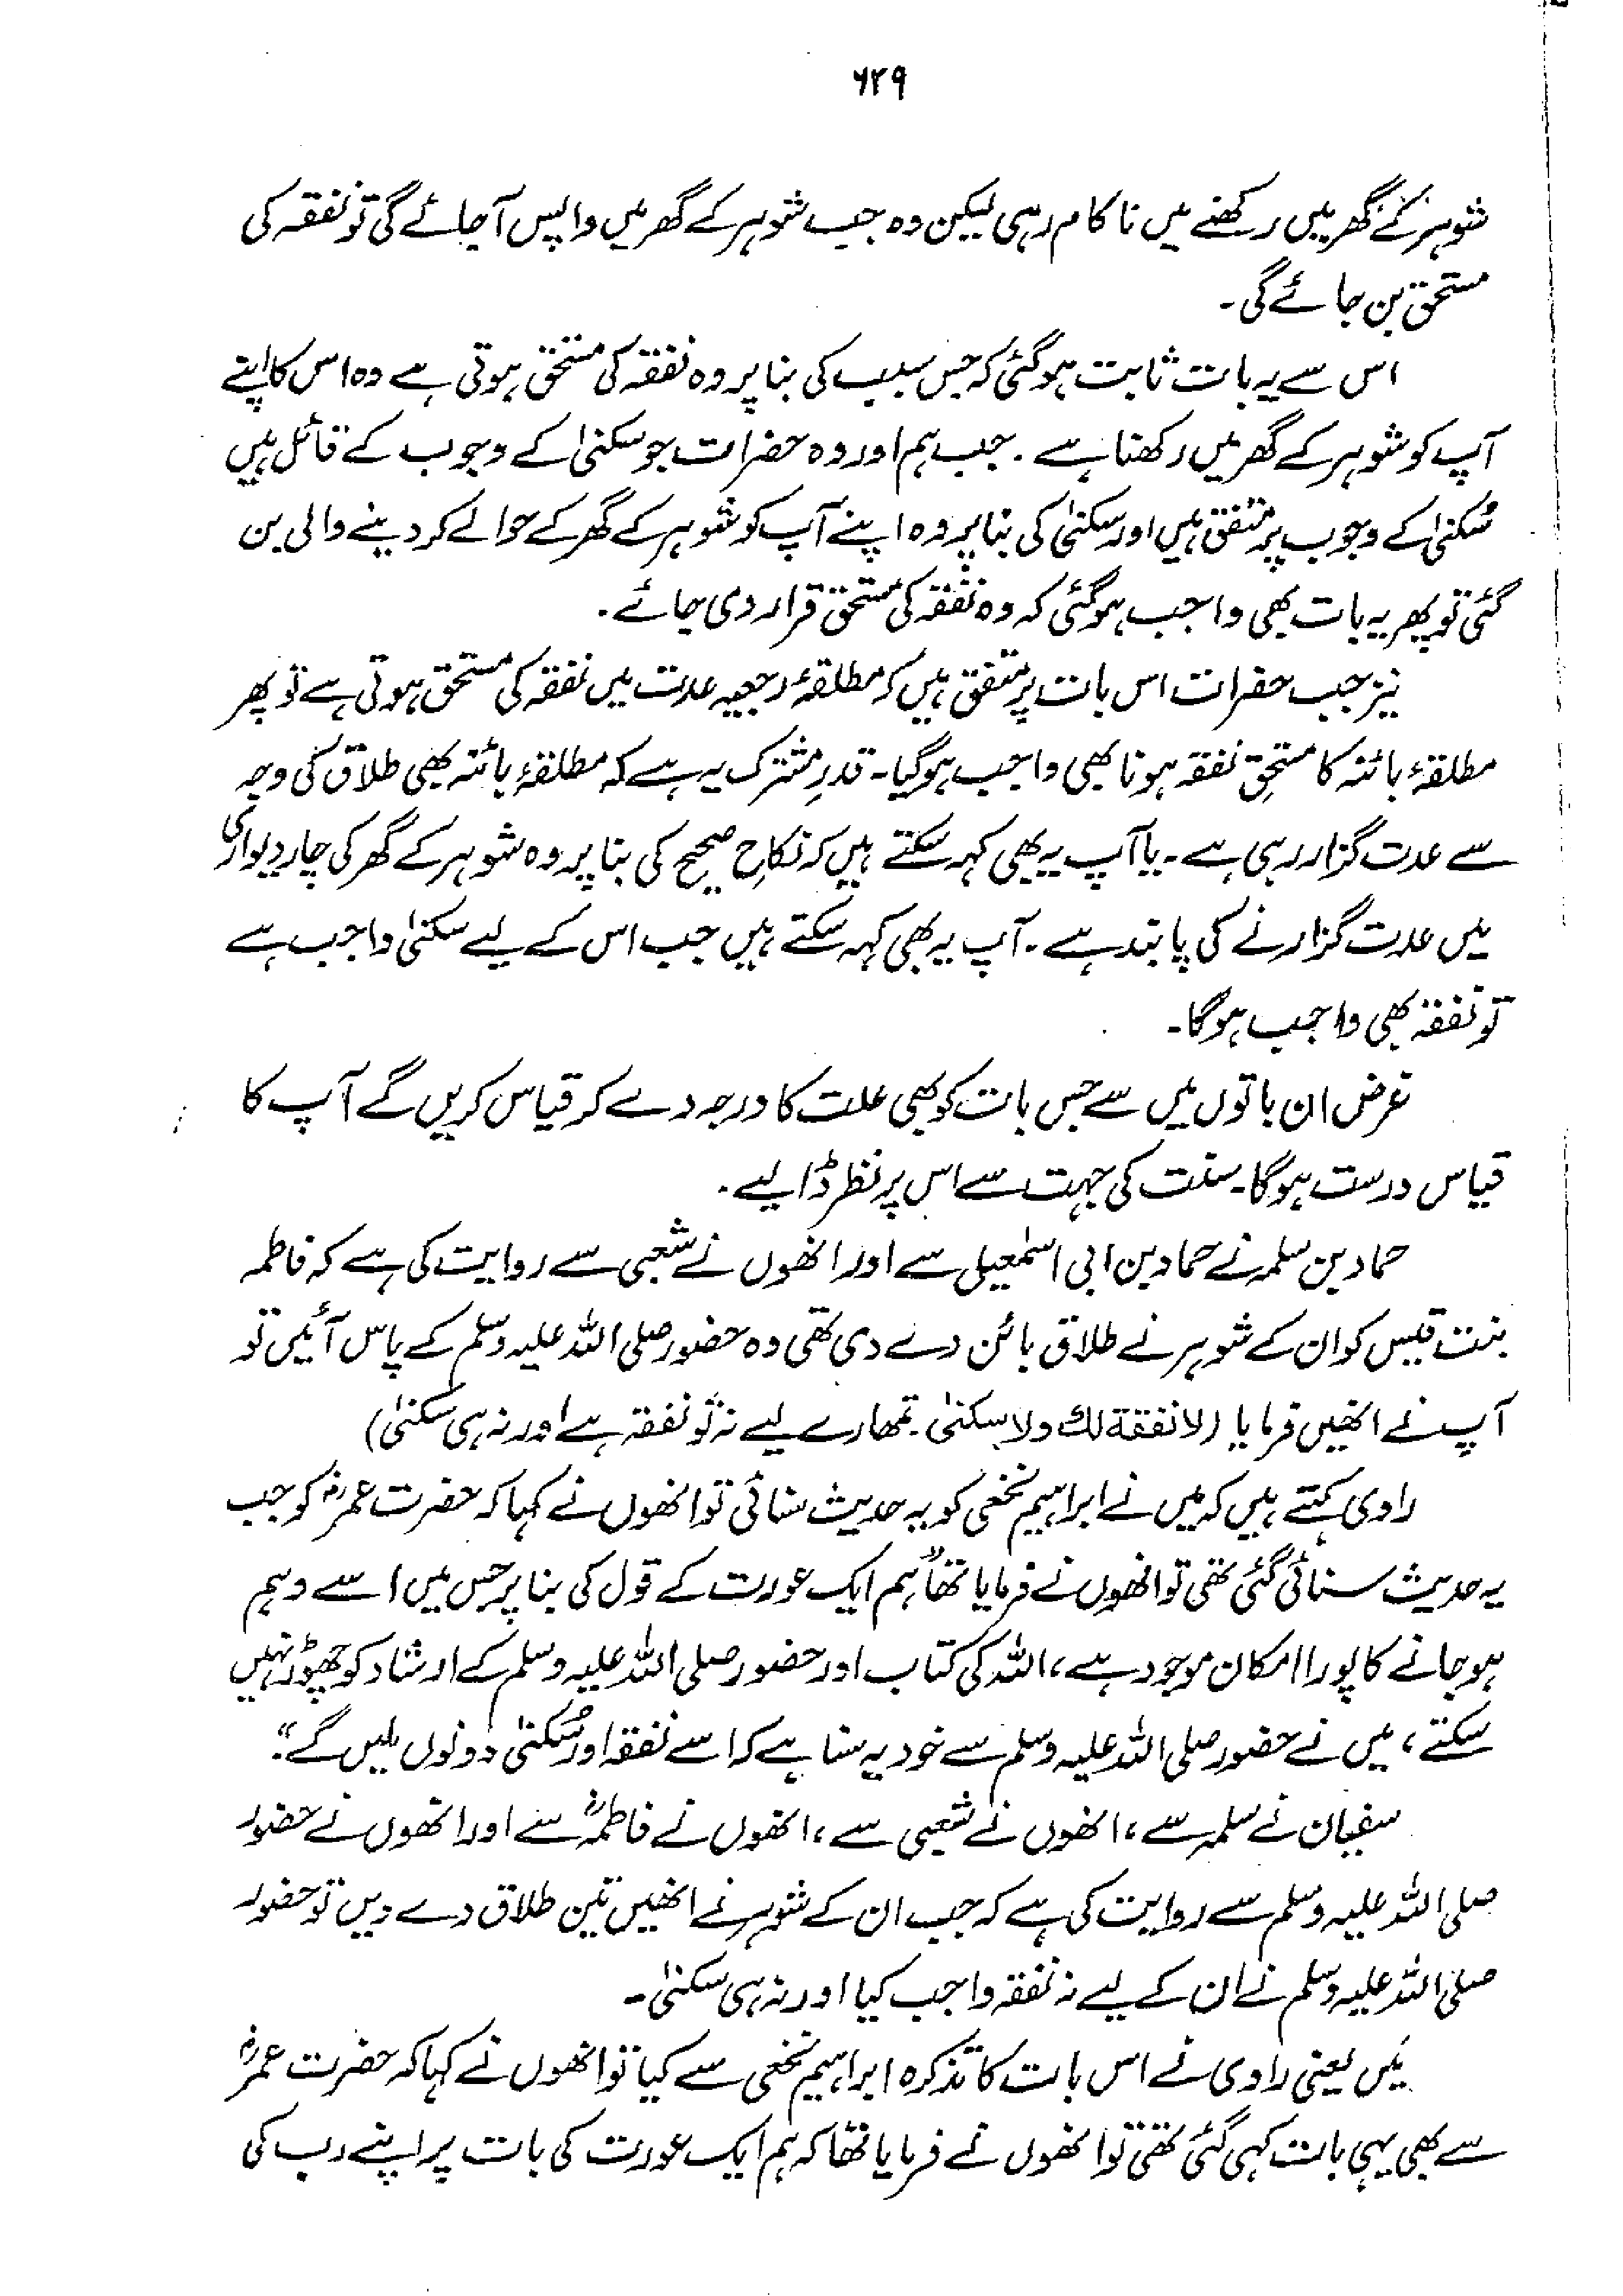 ۶۲۹
شوہر کے گھر میں رکھنے میں ناکام رہی لیکن وہ جب شوہر کے گھر میں واپس آجائے گی تو نفقہ کی
مستحق بن جائے گی۔
اس سے یہ بات ثابت ہوگئی کہ جس سبب کی بنا پر وہ نفقہ کی مستحق ہوتی ہے وہ اس کا اپنے
آپ کو شوہر کے گھر میں رکھنا ہے۔ جب ہم اور وہ حضرات جو سکنیٰ کے وجوب کے قائل ہیں
سُکنیٰ کے وجوب پر متفق ہیں اور سکنیٰ کی بنا پر وہ اپنے آپ کو شوہر کے گھر کے حوالے کر دینے والی بن
گئی تو پھر یہ بات بھی واجب ہوگئی کہ وہ نفقہ کی مستحق قرار دی جائے۔
نیز جب حضرات اس بات پر متفق ہیں کہ مطلقۂ رجعیہ عدت میں نفقہ کی مستحق ہوتی ہے تو پھر
مطلقۂ بائنہ کا مستحقِ نفقہ ہونا بھی واجب ہوگیا۔ قدرِ مشترک یہ ہے کہ مطلقۂ بائنہ بھی طلاق کی وجہ
سے عدت گزار رہی ہے۔ یا آپ یہ بھی کہہ سکتے ہیں کہ نکاحِ صحیح کی بنا پر وہ شوہر کے گھر کی چار دیواری
میں عدت گزارنے کی پابند ہے۔ آپ یہ بھی کہہ سکتے ہیں جب اس کے لیے سکنیٰ واجب ہے
تو نفقہ بھی واجب ہوگا۔
غرض ان باتوں میں سے جس بات کو بھی علت کا درجہ دے کر قیاس کریں گے آپ کا
قیاس درست ہوگا۔ سنت کی جہت سے اس پر نظر ڈالیے۔
حماد بن سلمہ نے حماد بن ابی اسمٰعیل سے اور انھوں نے شعبی سے روایت کی ہے کہ فاطمہ
بنت قیس کو ان کے شوہر نے طلاق بائن دے دی تھی وہ حضور صلی اللہ علیہ وسلم کے پاس آئیں تو
آپ نے انھیں فرمایا (لا نفقة لك ولا سكنىٰ۔ تمھارے لیے نہ تو نفقہ ہے اور نہ ہی سکنیٰ)
راوی کہتے ہیں کہ میں نے ابراہیم نخعی کو یہ حدیث سنائی تو انھوں نے کہا کہ حضرت عمرؓ کو جب
یہ حدیث سنائی گئی تھی تو انھوں نے فرمایا تھا "ہم ایک عورت کے قول کی بنا پر جس میں اسے وہم
ہو جانے کا پورا امکان موجود ہے، اللہ کی کتاب اور حضور صلی اللہ علیہ وسلم کے ارشاد کو چھوڑ نہیں
سکتے، میں نے حضور صلی اللہ علیہ وسلم سے خود یہ سنا ہے کہ اسے نفقہ اور سُکنیٰ دونوں ملیں گے"۔
سفیان نے سلمہ سے، انھوں نے شعبی سے، انھوں نے فاطمہؓ سے اور انھوں نے حضور
صلی اللہ علیہ وسلم سے روایت کی ہے کہ جب ان کے شوہر نے انھیں تین طلاق دے دیں تو حضور
صلی اللہ علیہ وسلم نے ان کے لیے نہ نفقہ واجب کیا اور نہ ہی سکنیٰ۔
میں یعنی راوی نے اس بات کا تذکرہ ابراہیم نخعی سے کیا تو انھوں نے کہا کہ حضرت عمرؓ
سے بھی یہی بات کہی گئی تھی تو انھوں نے فرمایا تھا کہ ہم ایک عورت کی بات پر اپنے رب کی